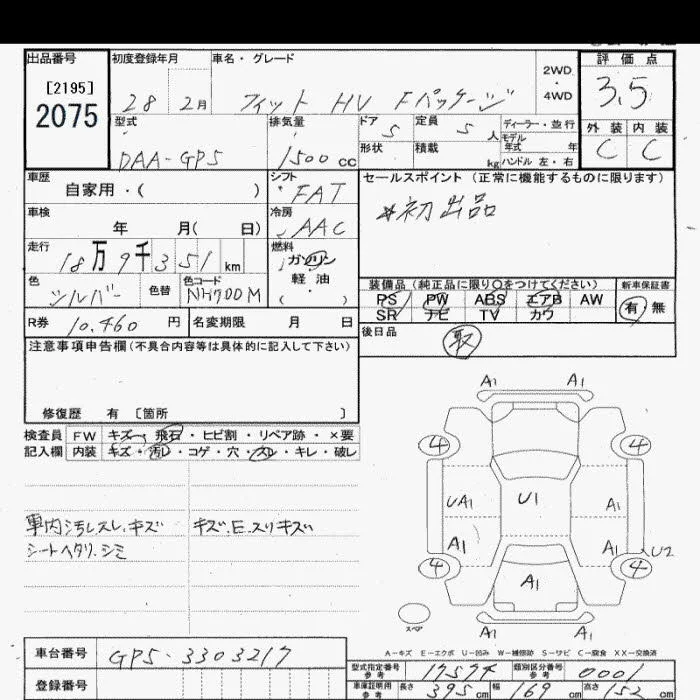 出品番号 初度登録年月 車名・グレード 評価点
[2195]
2075
28 2月 フィット HV Fパッケージ 2WD・4WD 3.5
型式 排気量 ドア 5 定員 5人 ディーラー・並行 外装 内装
DAA-GP5 1500cc 形状 積載 kg モデル年式 年 C C
ハンドル 左・右
車歴 自家用・( ) シフト FAT セールスポイント (正常に機能するものに限ります)
車検 年 月( 日) 冷房 AAC *初出品
走行 18万9千351km 燃料 ガソリン
軽油
・( )
色 シルバー 色替 色コード NH700M
装備品(純正品に限り○をつけてください) 新車保証書
PS PW ABS エアB AW 有 無
SR ナビ TV カワ
R券 10.460円 名変期限 月 日
後日品 取
注意事項申告欄(不具合内容等は具体的に記入して下さい)
修復歴 有 〔箇所 〕
検査員 FW キズ・飛石・ヒビ割・リペア跡・×要
記入欄 内装 キズ・汚レ・コゲ・穴・スレ・キレ・破レ
車内汚レスレ.キズ キズ.E.スリキズ
シートヘタリ.シミ
A1 A1
4 4
UA1 U1 A1
A1 A1 U2
4 A1 4
スペア
A1 A1
A-キズ E-エクボ U-凹み W-補修跡 S-サビ C-腐食 XX-交換済
車台番号 GP5-3303217
型式指定番号 参考 17574 類別区分番号 参考 0001
登録番号
車庫証明用 参考 長さ 395cm 幅 169cm 高さ 152cm